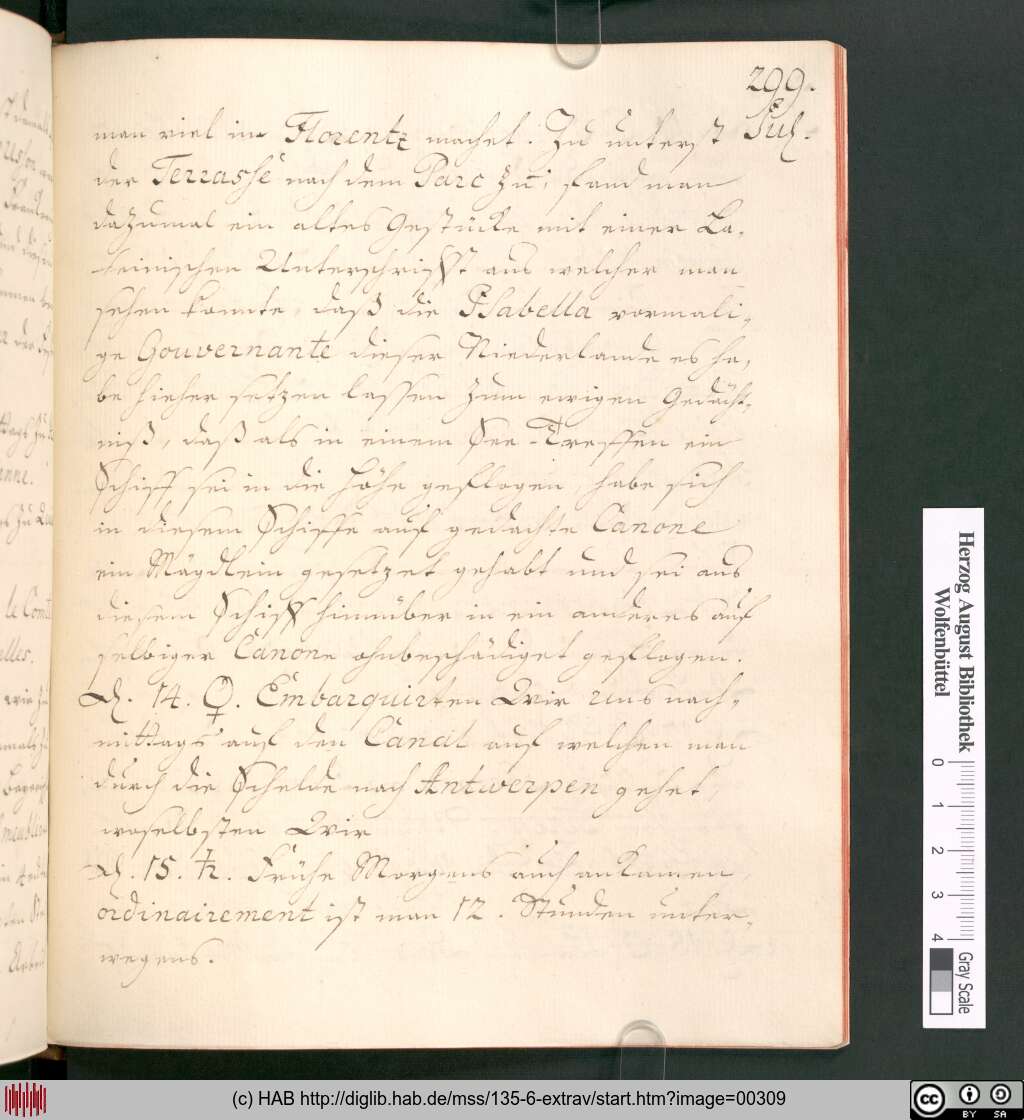 299.
Jul.
man viel in Florentz machet. Zu unterst
der Terrasse nach dem Parc zu, fand man
dazumal ein altes Gestücke mit einer La-
teinischen Unterschrifft aus welcher man
sehen konnte, daß die Isabella vormali-
ge Gouvernante dieser Niederlande es ha-
be hieher setzen lassen zum ewigen Gedächt-
niß, daß als in einem See-Treffen ein
Schiff sei in die Höhe geflogen, habe sich
in diesem Schiffe auf gedachte Canone
ein Mägdlein gesetzet gehabt und sei aus
diesem Schiff hinnüber in ein anderes auf
selbiger Canone ohnbeschädiget geflogen.
D. 14. ♀. Embarquirten Wir uns nach-
mittags auf den Canal auf welchen man
durch die Schelde nach Antwerpen gehet,
woselbsten Wir
D. 15. ♄. Frühe Morgens auch ankamen,
ordinairement ist man 12. Stunden unter-
wegens.
Herzog August Bibliothek
Wolfenbüttel
0 1 2 3 4
Gray Scale
(c) HAB http://diglib.hab.de/mss/135-6-extrav/start.htm?image=00309
cc BY SA